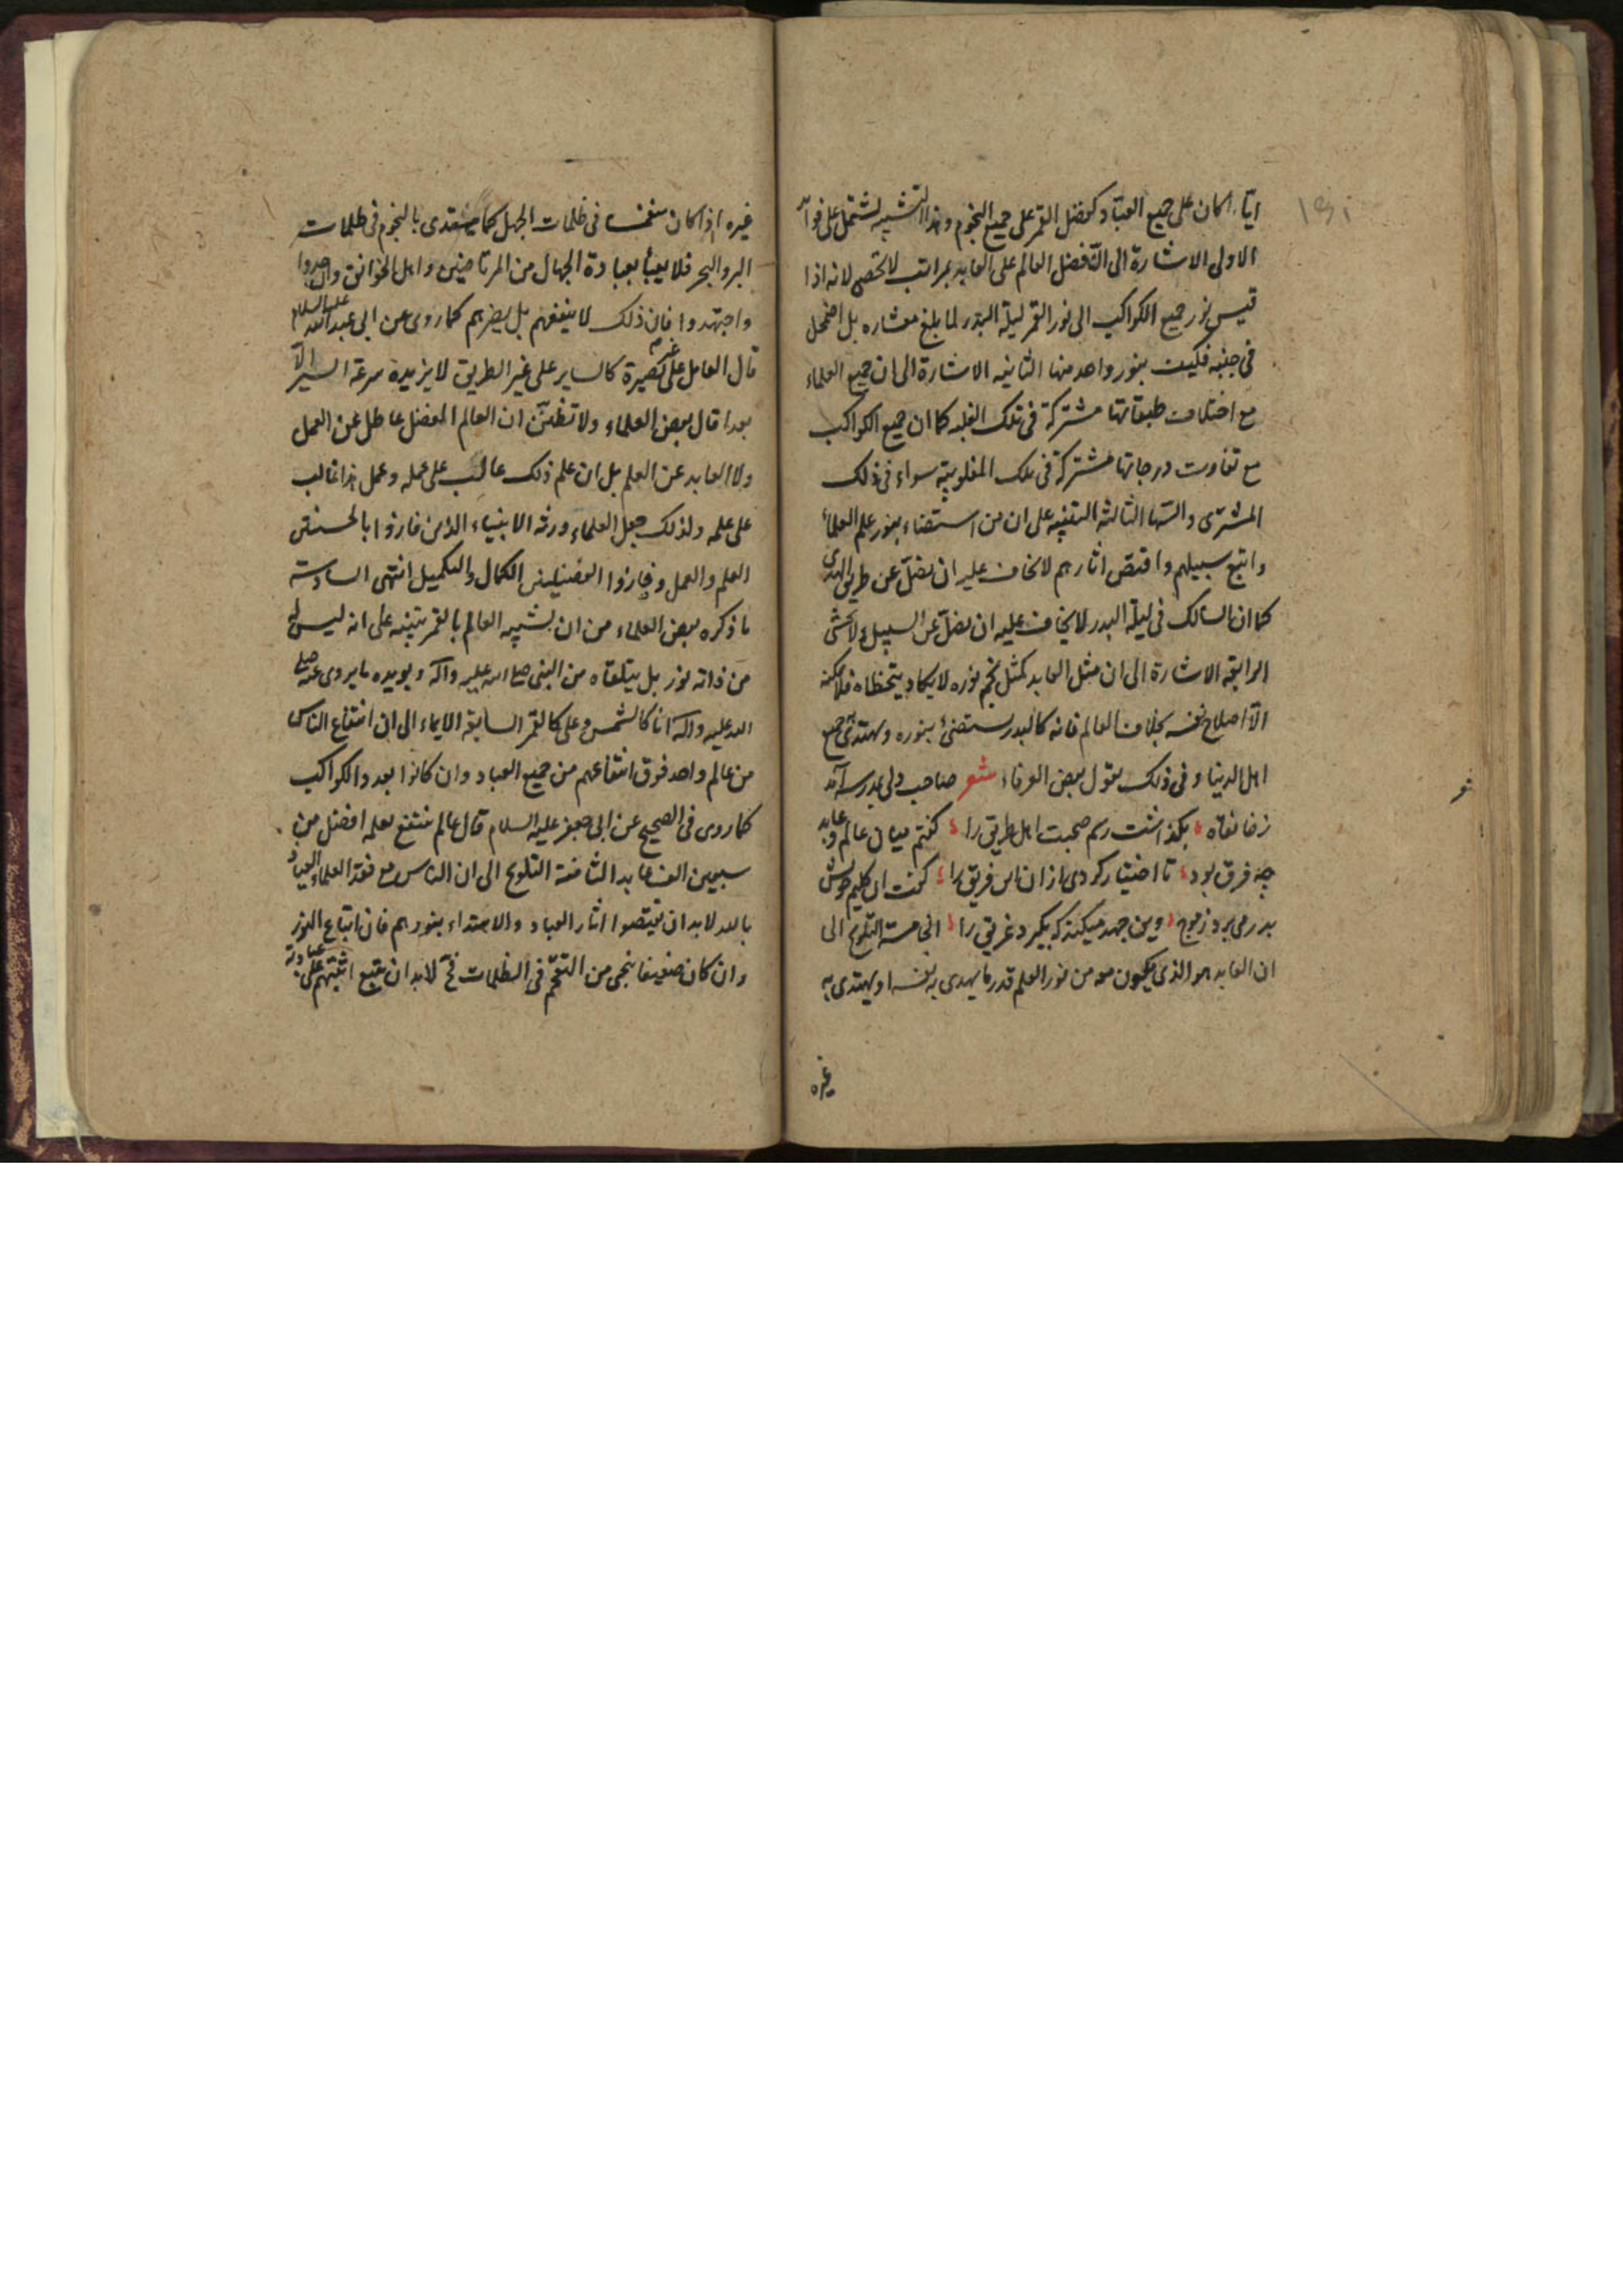 ایّاً ما کان علی جمیع العبّاد کفضل القمر علی جمیع النجوم و هذا التشبیه لشتمل علی فوائد
الاولی الاشارة الی انّ فضل العالم علی العابد بمراتب لا تحصی لانه اذا
قیس نور جمیع الکواکب الی نور القمر لیلة البدر لما بلغ معشاره بل اضمحل
فی جنبه فکیف بنور واحد منها الثانیه الاشارة الی ان جمیع العلماء
مع اختلاف طبقاتها مشترکة فی تلک الغلبه کما ان جمیع الکواکب
مع تفاوت درجاتها مشترکة فی تلک المغلوبیة سواء فی ذلک
المشتری والسها الثالثه التنبیه علی ان من استضاء بنور علم العلماء
واتبع سبیلهم واقتص اثارهم لا یخاف علیه ان یضلّ عن طریق الهدی
کما ان السالک فی لیلة البدر لا یخاف علیه ان یضلّ عن السبیل و لا یخشی
الرابعه الاشارة الی ان مثل العابد کمثل نجم نوره لا یکاد یتخطاه فلا یمکنه
الّا اصلاح نفسه بخلاف العالم فانه کالبدر یستضیٔ بنوره ویهتدی جمیع
اهل الدنیا و فی ذلک یقول بعض العرفاء شعر صاحب دلی بمدرسه آمد
ز خانقاه بگذاشت رسم صحبت اهل طریق را گفتم میان عالم و عابد
چه فرق بود تا اختیار کردی از ان این فریق را گفت ان کلیم خویش
بدر می برد ز موج وین جهد میکند که بگیرد غریق را الخامسة التلویح الی
ان العابد هو الذی یکون معه من نور العلم قدر ما یهدی به نفسه او یهتدی به
غیره
غیره اذا کان منغمسا فی ظلمات الجهل کما یهتدی بالنجوم فی ظلمات
البر والبحر فلا یعبأ بعبادة الجهال من المرتاضین واهل الخوانق وان جدوا
واجتهدوا فان ذلک لا ینفعهم بل یضرهم کما روی عن ابی عبد الله علیه السلام
قال العامل علی غیر بصیرة کالسایر علی غیر الطریق لا یزیده سرعة السیر الّا
بعدا قال بعض العلماء ولا تظننّ ان العالم المفضل عاطل عن العمل
ولا العابد عن العلم بل ان علم ذلک غالب علی عمله وعمل هذا غالب
علی علمه ولذلک جعل العلماء ورثة الانبیاء الذین فازوا بالحسنیین
العلم والعمل وفازوا الفضیلتین الکمال والتکمیل انتهی السادسة
ما ذکره بعض العلماء من ان تشبیه العالم بالقمر تنبیه علی انه لیس له
من ذاته نور بل یتلقاه من النبی صلی الله علیه وآله ویویده ما یروی عنه صلی
الله علیه وآله انا کالشمس وعلی کالقمر السابعة الایماء الی ان انتفاع الناس
من عالم واحد فوق انتفاعهم من جمیع العباد وان کانوا بعدد الکواکب
کما روی فی الصحیح عن ابی جعفر علیه السلام قال عالم ینتفع بعلمه افضل من
سبعین الف عابد الثامنة التلویح الی ان الناس مع فقد العلماء العیاذ
بالله لابد ان یقتصوا اثار العباد والاهتداء بنورهم فان اتباع النور
وان کان ضعیفا ینجی من التقحّم فی الظلمات فح لابد ان یتبع اثبتهم علی عبادته